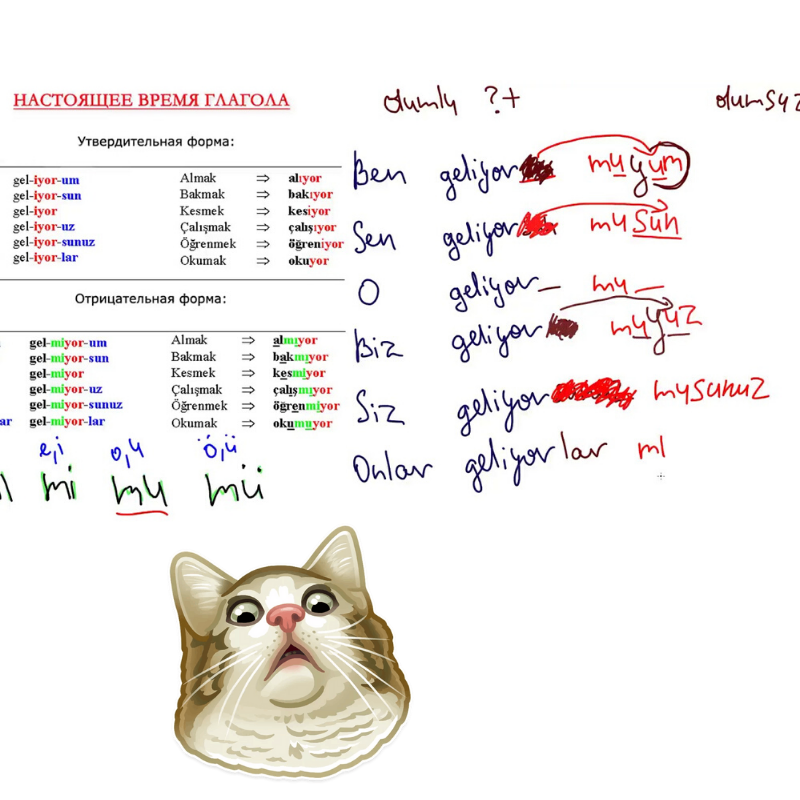 НАСТОЯЩЕЕ ВРЕМЯ ГЛАГОЛА
Утвердительная форма:
gel-iyor-um
gel-iyor-sun
gel-iyor
gel-iyor-uz
gel-iyor-sunuz
gel-iyor-lar
Almak ⇒ alıyor
Bakmak ⇒ bakıyor
Kesmek ⇒ kesiyor
Çalışmak ⇒ çalışıyor
Öğrenmek ⇒ öğreniyor
Okumak ⇒ okuyor
Отрицательная форма:
gel-miyor-um
gel-miyor-sun
gel-miyor
gel-miyor-uz
gel-miyor-sunuz
ar gel-miyor-lar
Almak ⇒ almıyor
Bakmak ⇒ bakmıyor
Kesmek ⇒ kesmiyor
Çalışmak ⇒ çalışmıyor
Öğrenmek ⇒ öğrenmiyor
Okumak ⇒ okumuyor
e,i o,u ö,ü
mi mu mü
olumlu ?+ olumsuz
Ben geliyor muyum
Sen geliyor mu sun
O geliyor_ mu _
Biz geliyor muyuz
Siz geliyor musunuz
Onlar geliyorlar mı